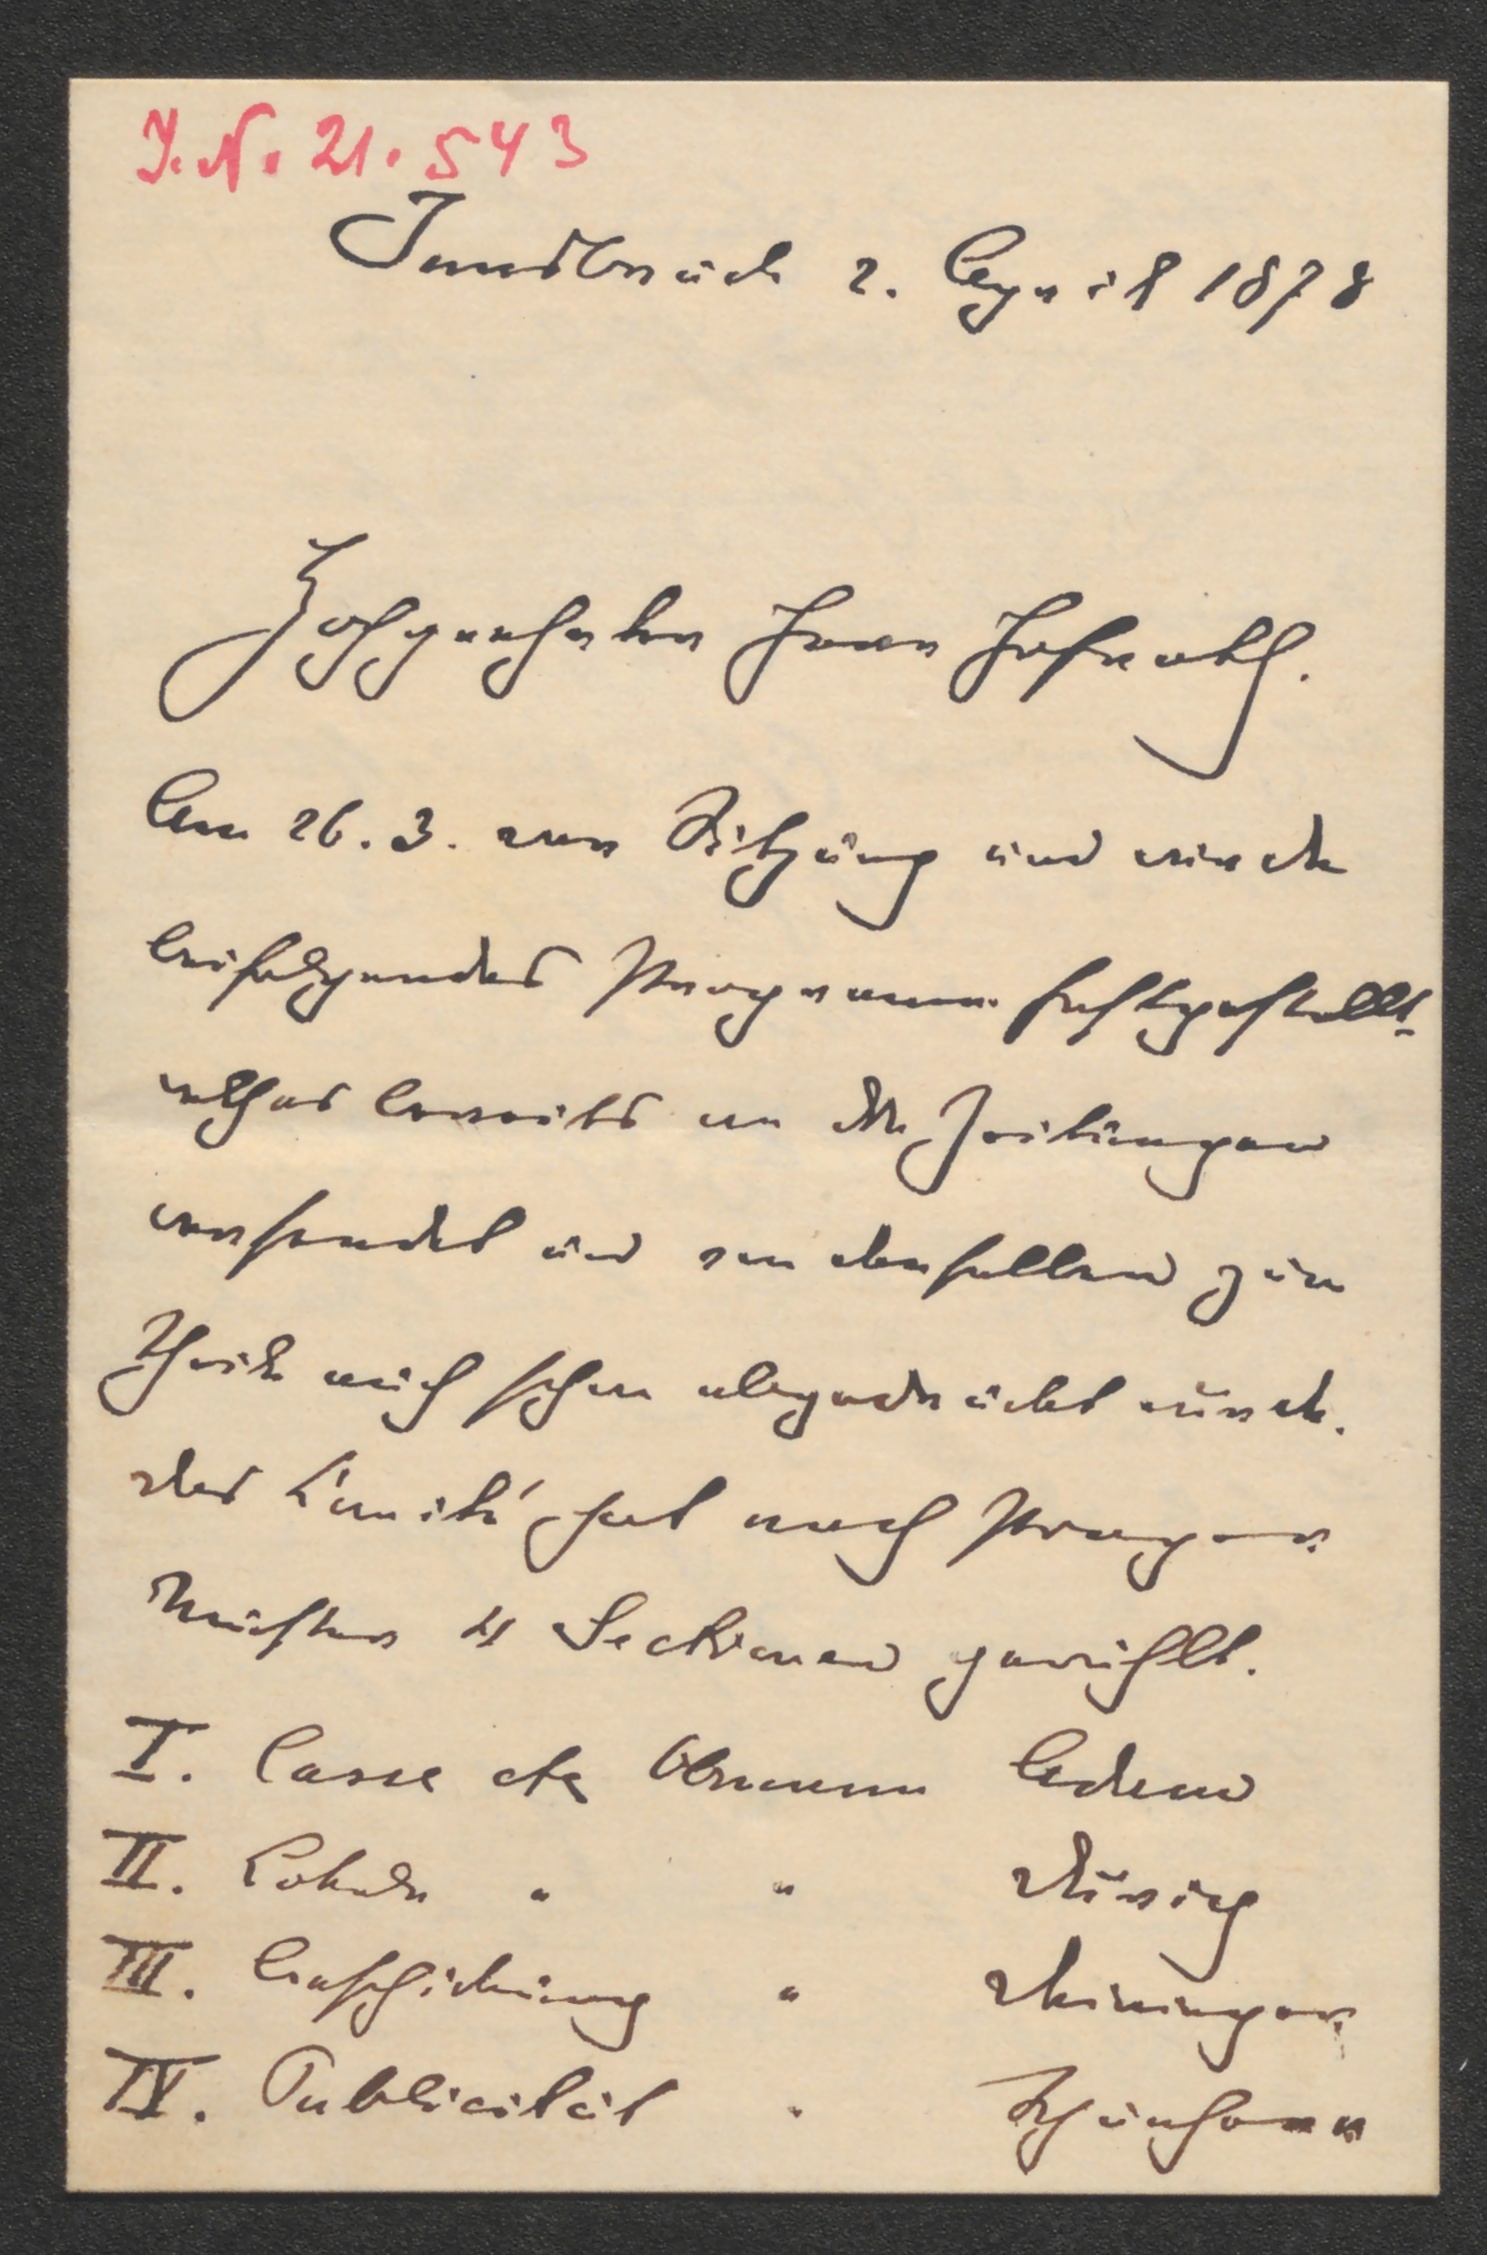 I. N. 21.543
Innsbruck 2. April 1878
Hochgeehrter Herr Hofrath.
Am 26. 3. war Sitzung und wurde
beifolgendes Programm festgestellt
welches bereits an die Zeitungen
versendet und von denselben zum
Theile auch schon abgedruckt wurde.
Das Comité hat nach Prager
Muster 4 Sectionen gewählt.
I. Casse etc Obmann Adam
II. Lokale " "
III. Beschickung "
IV. Publicität "